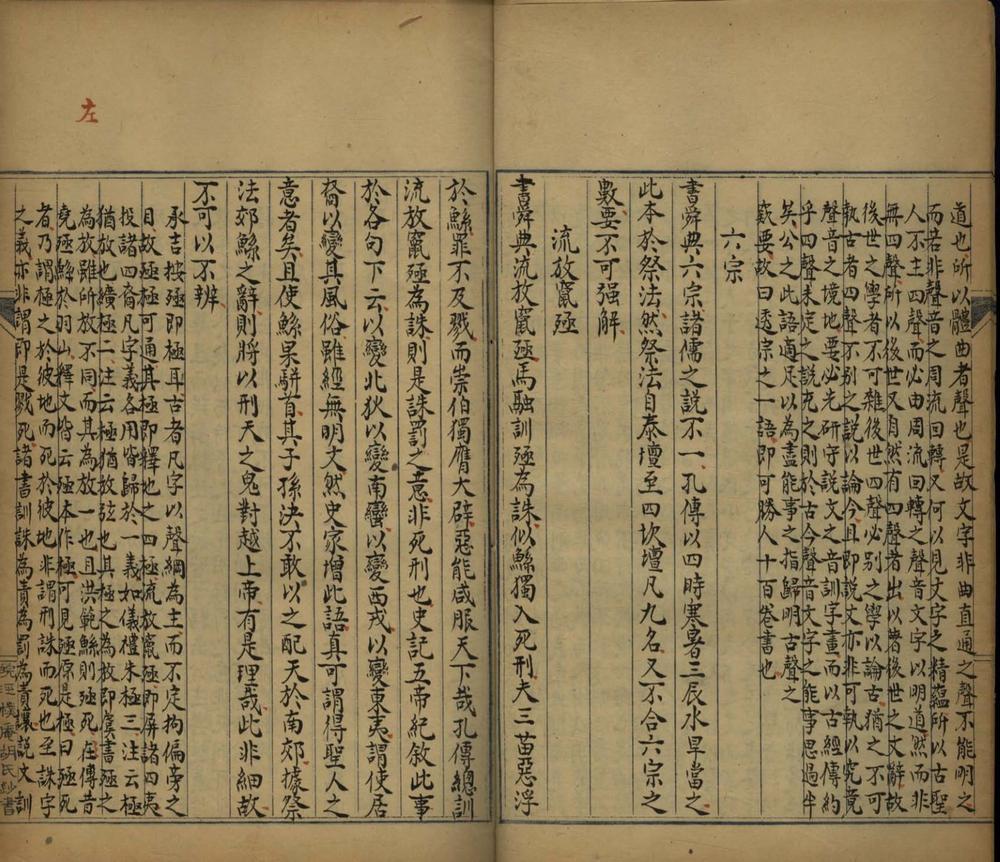 道也所以體曲者聲也是故文字非曲直通之聲不能明之
而若非聲音之周流回轉又何以見文字之精蘊所以古聖
人不主四聲而必由周流回轉之聲音文字以明道然而非
無四聲所以後世又自然有四聲者出以著後世之文辭故
後世之學者不可雜後世四聲必別之學以論古猶之不可
執古者四聲不別之說以論今且即說文亦非可執以究竟
聲音之境地要必先研守說文之音訓字畫而以古經傳約
乎四聲未定之說充之則於古今聲音文字之能事思過半
矣公之此語適足以為盡能事之指歸明古聲之
竅要故曰透宗之一語即可勝人十百卷書也
六宗
書舜典六宗諸儒之說不一孔傳以四時寒暑三辰水旱當之
此本於祭法然祭法自泰壇至四坎壇凡九名又不合六宗之
數要不可强解
流放竄殛
書舜典流放竄殛馬融訓殛為誅似鯀獨入死刑夫三苗惡浮
於鯀罪不及戮而崇伯獨膺大辟惡能咸服天下哉孔傳總訓
流放竄殛為誅則是誅罰之意非死刑也史記五帝紀敘此事
於各句下云以變北狄以變南蠻以變西戎以變東夷謂使居
裔以變其風俗雖經無明文然史家增此語真可謂得聖人之
意者矣且使鯀果駢首其子孫決不敢以之配天於南郊據祭
法郊鯀之辭則將以刑天之鬼對越上帝有是理哉此非細故
不可以不辨
承吉按殛即極耳古者凡字以聲綱為主而不定拘偏旁之
目故殛極可通其極即釋也之四極流放竄殛即屏諸四夷
投諸四裔凡字義各用皆歸於一義如儀禮朱極三注云極
猶放也續極二注云極猶放弦也其極之為放即虞書殛之
為放雖所放不同而其為放一也且洪範鯀則殛死在傳昔
堯殛鯀於羽山釋文皆云殛本作極可見殛原是極曰殛死
者乃謂極之於彼地而死於彼地非謂刑誅而死也至誅字
之義亦非謂即是戮死諸書訓誅為責為罰為責讓說文訓
左